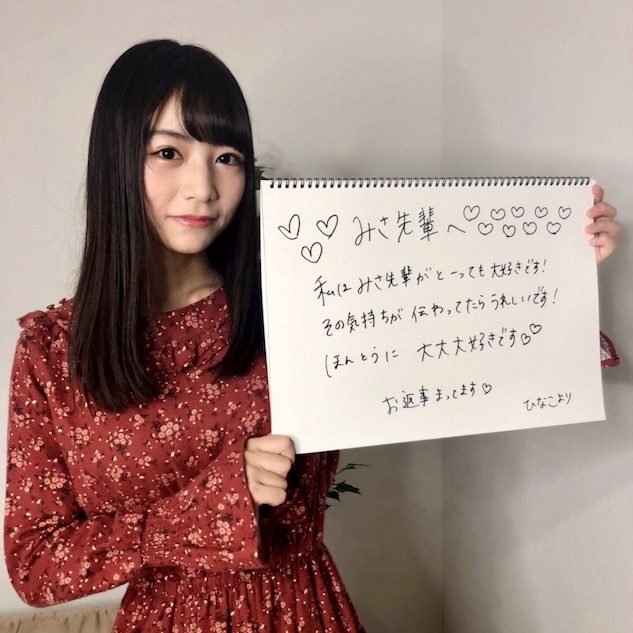 ♡♡♡ みさ先輩へ♡♡♡♡♡♡♡♡♡
私はみさ先輩がとーっても大好きです!
その気持ちが伝わってたらうれしいです!
ほんとうに 大大大好きです♡♡
お返事まってます♡
ひなこより